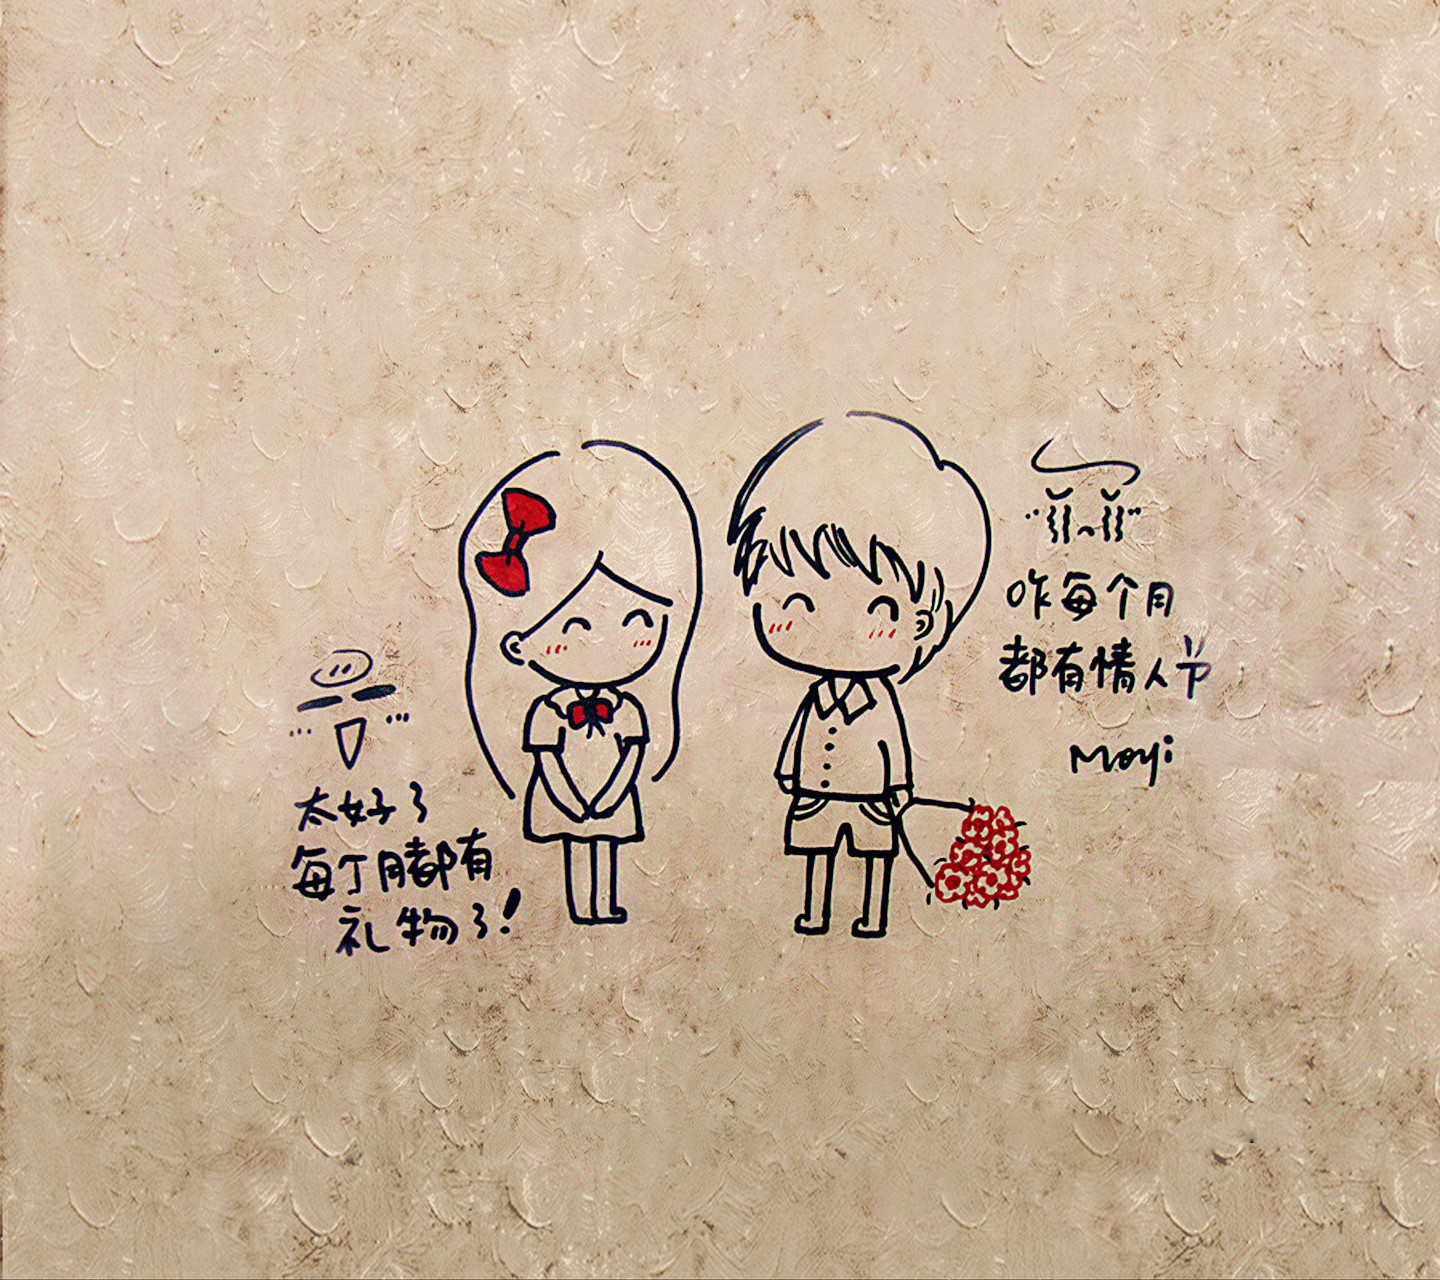 太好了
每个月都有
礼物了!
咋每个月
都有情人节
Moyi